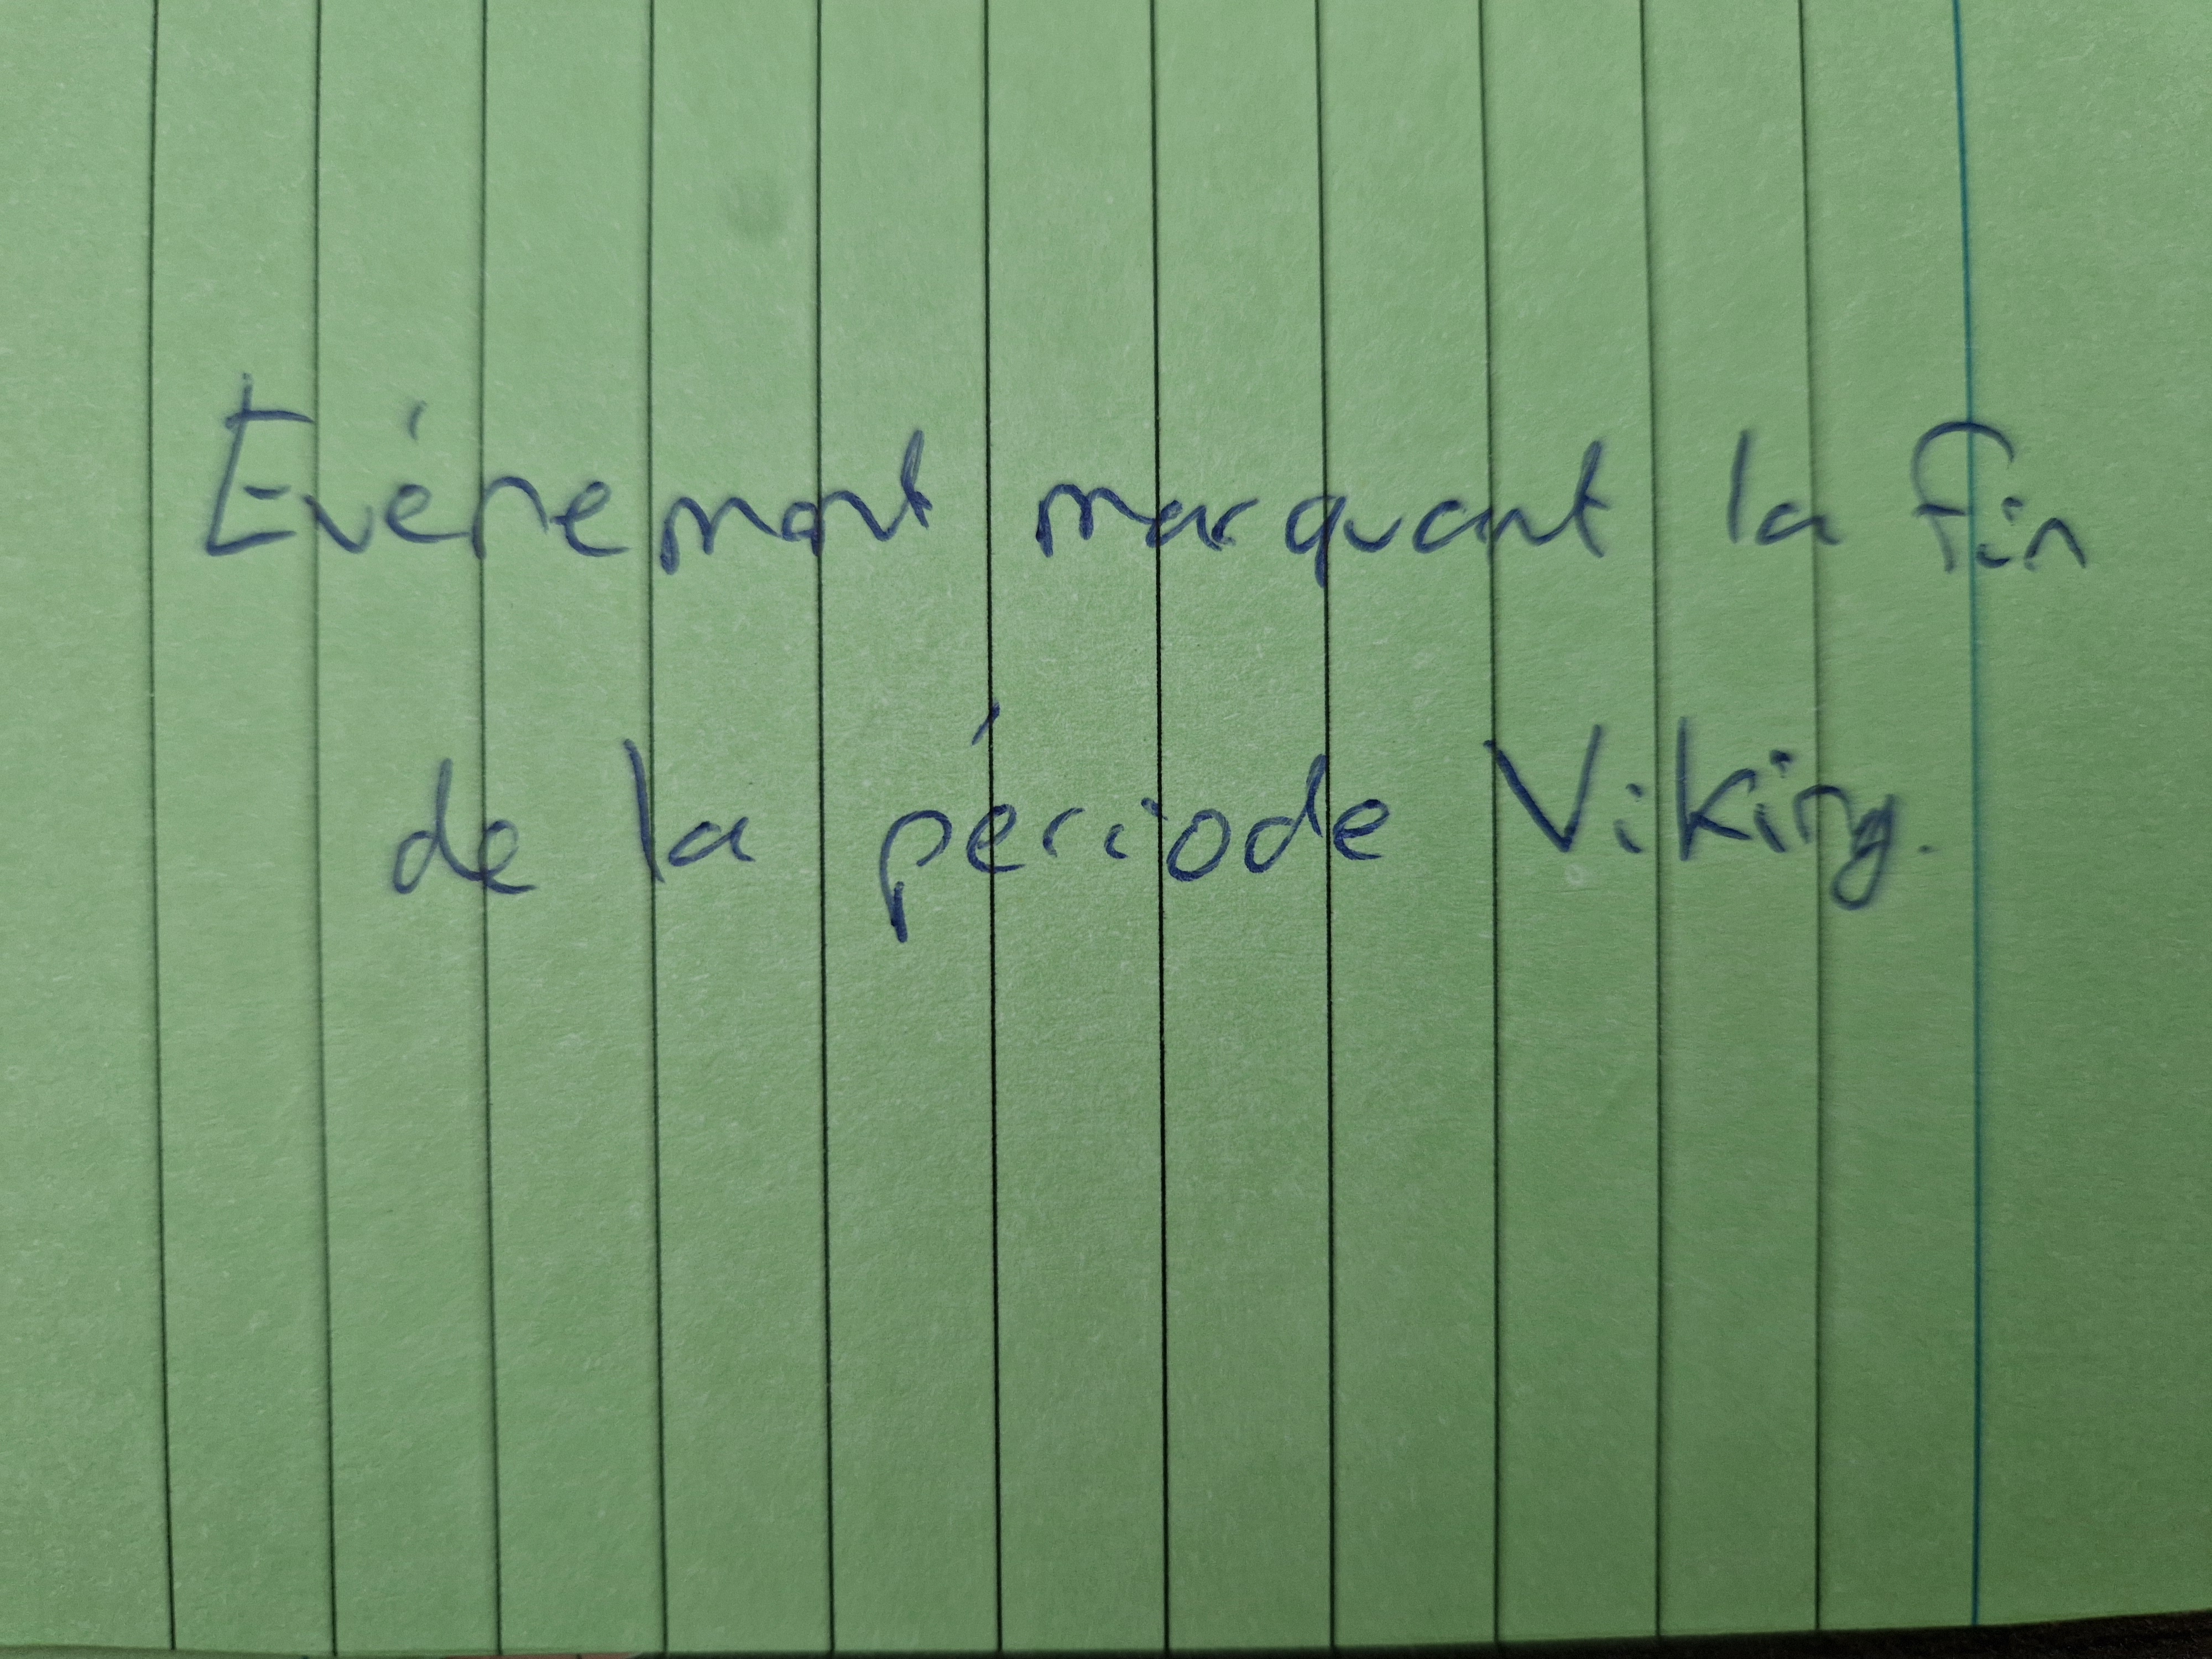 Evénement marquant la fin
de la période Viking.